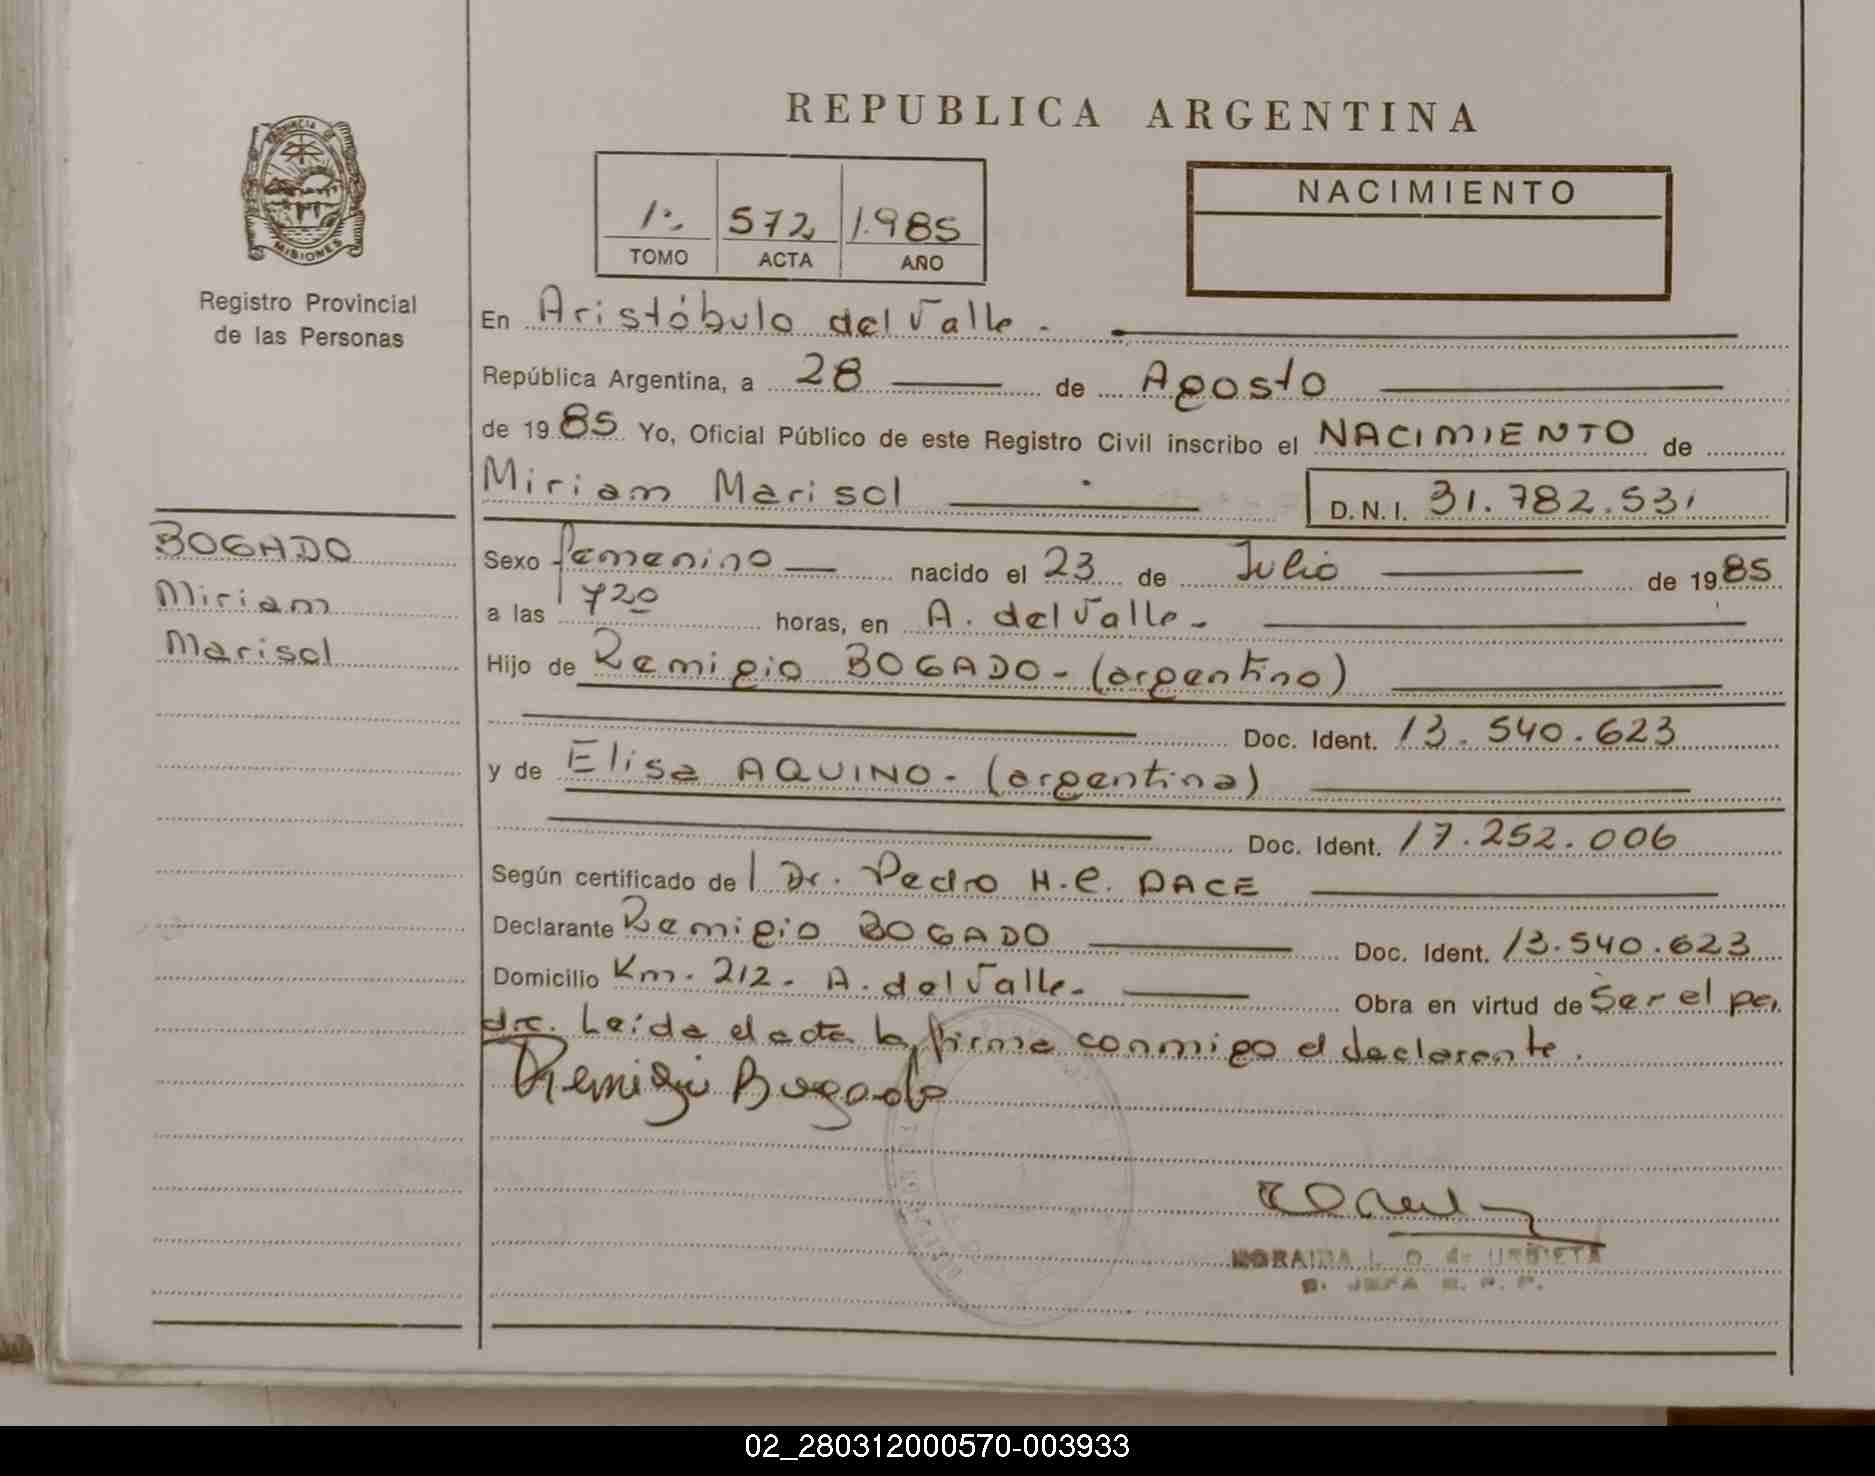 REPUBLICA ARGENTINA
PROVINCIA DE
MISIONES
Registro Provincial
de las Personas
1º 572 1.985
TOMO ACTA AÑO
NACIMIENTO
En Aristóbulo del Valle.
República Argentina, a 28 de Agosto
de 1985 Yo, Oficial Público de este Registro Civil inscribo el NACIMIENTO de
Miriam Marisol D.N.I. 31.782.531
BOGADO
Miriam
Marisol
Sexo femenino nacido el 23 de Julio de 1985
a las 720 horas, en A. del Valle.
Hijo de Remigio BOGADO - (argentino)
Doc. Ident. 13.540.623
y de Elisa AQUINO - (argentina)
Doc. Ident. 17.252.006
Según certificado de Dr. Pedro H.C. DACE
Declarante Remigio BOGADO Doc. Ident. 13.540.623
Domicilio Km. 212 - A. del Valle. Obra en virtud de Ser el pa
dre. Leída el acta la firma conmigo el declarante.
Remigio Bogado
NORAIDA L. O. de URBIETA
JEFA R. P. P.
02_280312000570-003933